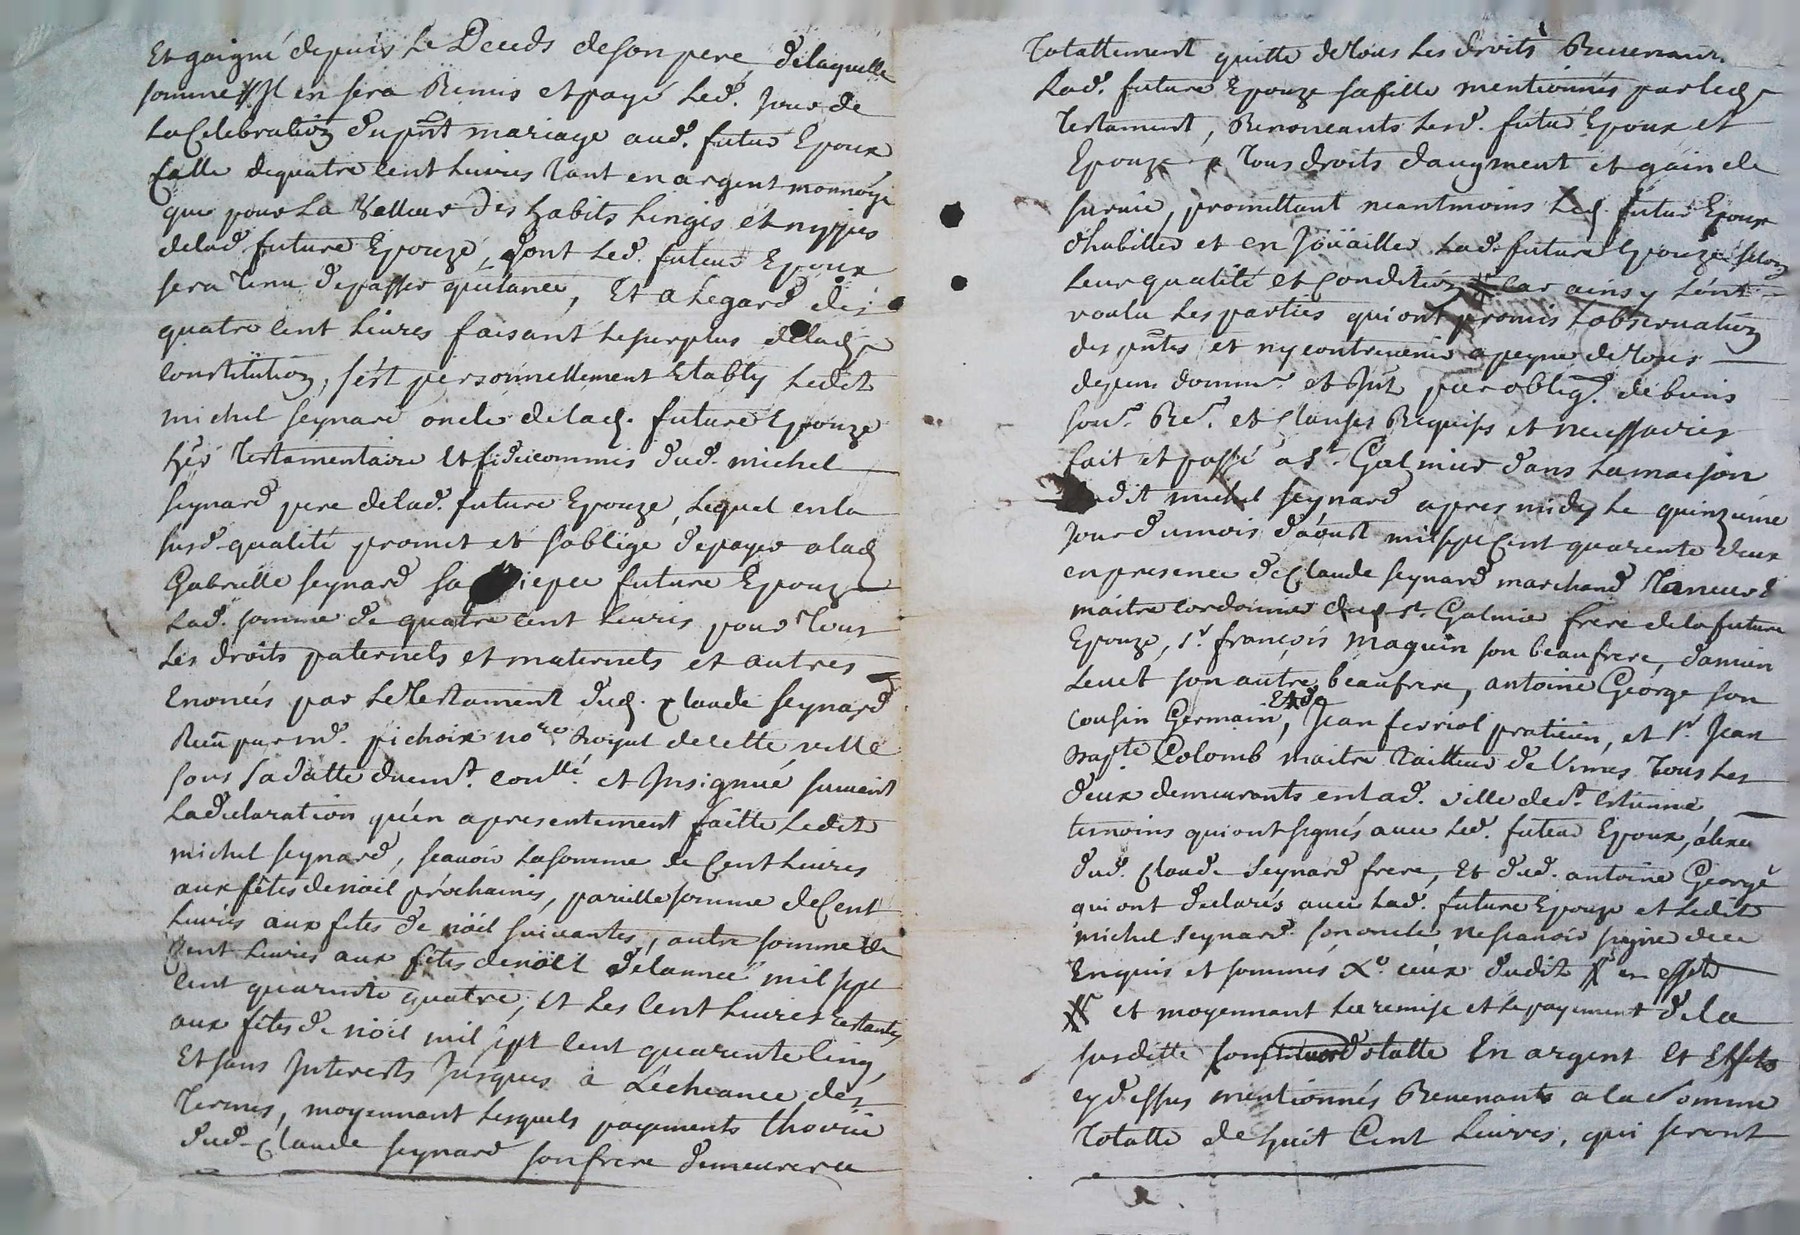 Et gaigné depuis le Deceds de son pere, de laquelle
somme # Il en sera Remis et payé led. Jour de
la Celebration du pnt mariage aud. futur Epoux
Celle de quatre Cent Livres tant en argent monnoyé
que pour la Valleur des habits linges et nippes
de lad future Epouze, dont led. futeur Epoux
sera tenu de passer quitance, Et a Legard des
quatre Cent Livres faisant le surplus de lad
constitution, s'est personnellement Etably Ledit
michel seynard oncle de lad. future Epouze
her Testamentaire et fideicommis dud. michel
seynard pere de lad. future Epouze, lequel en la
susd. qualité promet et s'oblige de payer a lad
Gabrielle seynard sa niepce future Epouze
Lad. somme de quatre cent Livres pour Tout
les droits paternels et maternels et autres
Enoncés par le Testament dud. Claude seynard
Receu par me. pichoix nore Royal de cette ville
sous sa datte duemt. conllé. et Insignué suivant
La declaration qu'en a presentement faitte Ledit
michel seynard, scavoir la somme de Cent Livres
aux fêtes de noël prochaines, pareille somme de Cent
Livres aux fetes de noël suivantes, autre somme de
Cent Livres aux fêtes de noël de lannée mil sept
Cent quarente quatre, et les Cent Livres restantes
aux fêtes de noël mil sept Cent quarente Cinq,
Et sans Interests Jusques à L'echeance des
Termes, moyennant lesquels payements lhoirie
dud. Claude seynard son frere demeurera
Totallement quitte de tous les droits Revenants
Lad. future Epouze sa fille mentionnés par led.
Testament, Renonceants lesd. futur Epoux et
Epouze a tous droits daugment et gain de
survie, promettant neantmoins Led. futur Epoux
d'habiller et en Joüailler lad. future Epouze selon
leur qualité et Condition # Car ainsy l'ont
voulu les parties qui ont promis l'observation
des pntes et ny contrevenir a peyne de tous
depens domm. et Int. par oblig. de biens
soum. Ren. et Clauses Requises et necessaires
fait et passé a St. Galmier dans la maison
dudit michel seynard apres midy le quinzieme
Jour du mois d'aoust mil sept Cent quarente deux
en presence de Claude seynard marchand Tanneur &
maitre cordonnier dud. St. Galmier frere de la future
Epouze, sr. françois Maguin son beaufrere, damien
Levet son autre beaufrere, antoine George son
cousin Germain, Et de Jean ferriol praticien, et sr. Jean
Bapte. Colomb maitre Tailleur de Limes Tous les
deux demeurants en lad. ville de St. Estienne
temoins qui ont signés avec led. futeur Epoux, a lexcep
dud. Claude Seynard frere, Et dud. antoine George
qui ont declarés avec lad. future Epouze et ledit
michel Seynard son oncle, ne scavoir signer de ce
Enquis et sommés Xo. ceux dudit # en effets
# et moyennant la remise et le payement de la
susditte constitution dotalle En argent Et Effets
cy dessus mentionnés Revenants a la Somme
Totalle de huit Cent Livres, qui seront